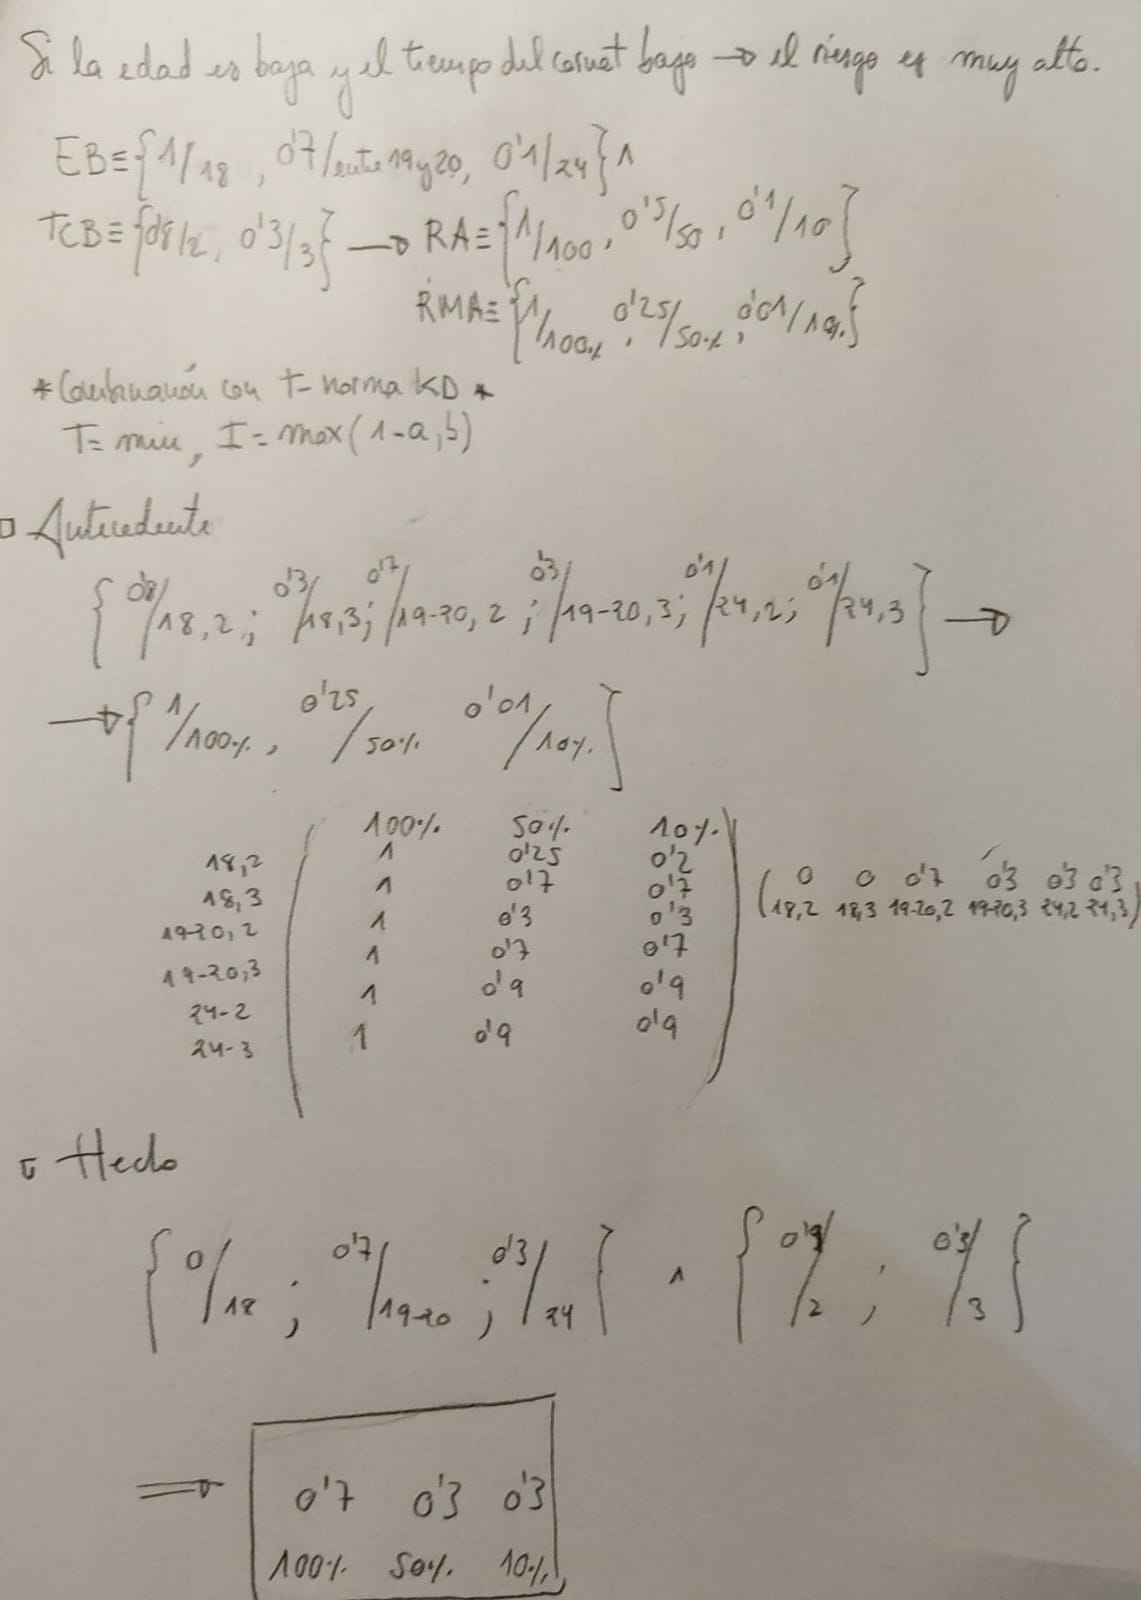 Si la edad es baja y el tiempo del carnet bajo → el riesgo es muy alto.
EB≡{1/18, 0'7/entre 19 y 20, 0'1/24} ∧
TCB≡{0'8/2, 0'3/3} → RA≡{1/100, 0'5/50, 0'1/10}
RMA≡{1/100%, 0'25/50%, 0'01/10%}
*Combinación con t-norma KD*
T=min, I=max(1-a,b)
Antecedente
{0'8/18,2; 0'3/18,3; 0'7/19-20,2; 0'3/19-20,3; 0'1/24,2; 0'1/24,3} →
→ {1/100%, 0'25/50% 0'01/10%}
100% 50% 10%
18,2 1 0'25 0'2
18,3 1 0'7 0'7
19-20,2 1 0'3 0'3
19-20,3 1 0'7 0'7
24-2 1 0'9 0'9
24-3 1 0'9 0'9
(0 0 0'7 0'3 0'3 0'3
18,2 18,3 19-20,2 19-20,3 24,2 24,3)
Hecho
{0/18; 0'7/19-20; 0'3/24} ∧ {/2; 0'3/3}
⇒ 0'7 0'3 0'3
100% 50% 10%